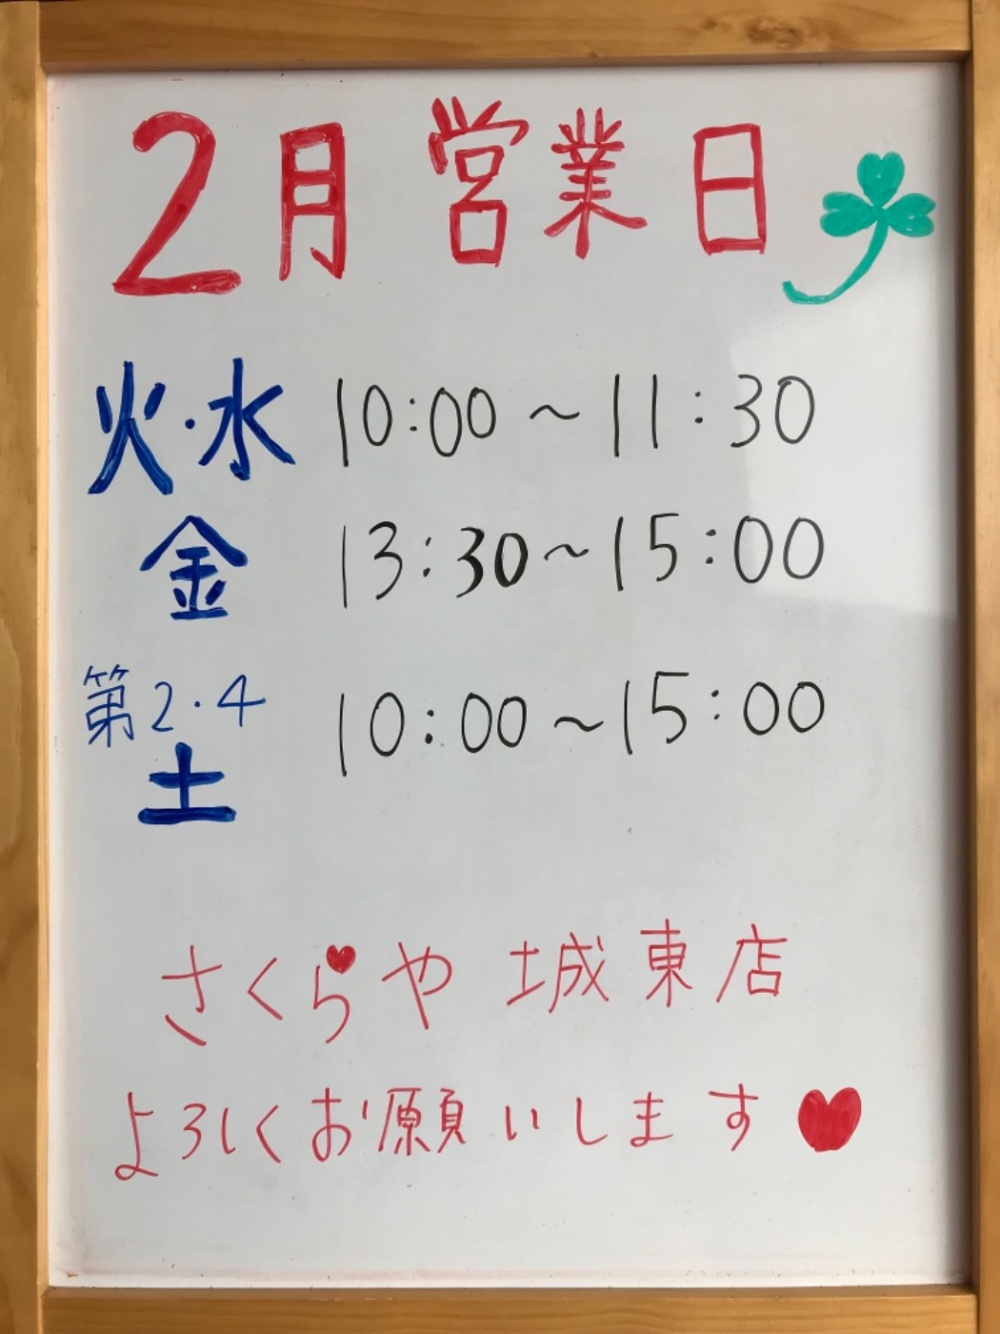 2月営業日
火・水 10:00～11:30
金 13:30～15:00
第2・4
土 10:00～15:00
さくらや 城東店
よろしくお願いします